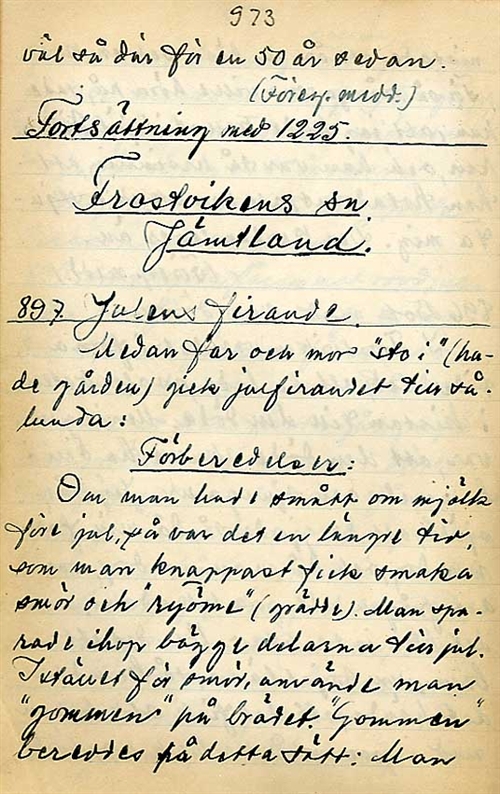 973
väl så där för en 50 år sedan.
(Föreg. medd.)
Fortsättning med 1225.
Frostvikens sn
Jämtland.
897. Julens firande.
Medan far och mor "sto i" (ha-
de gården) gick julfirandet till så-
lunda:
Förberedelser:
Om man hade smått om mjölk
före jul, så var det en längre tid,
som man knappast fick smaka
smör och "rjöme" (grädde). Man spa-
rade ihop bägge delarna till jul.
Istället för smör, använde man
"gommen" på brödet. "Gommen"
bereddes på detta sätt: Man